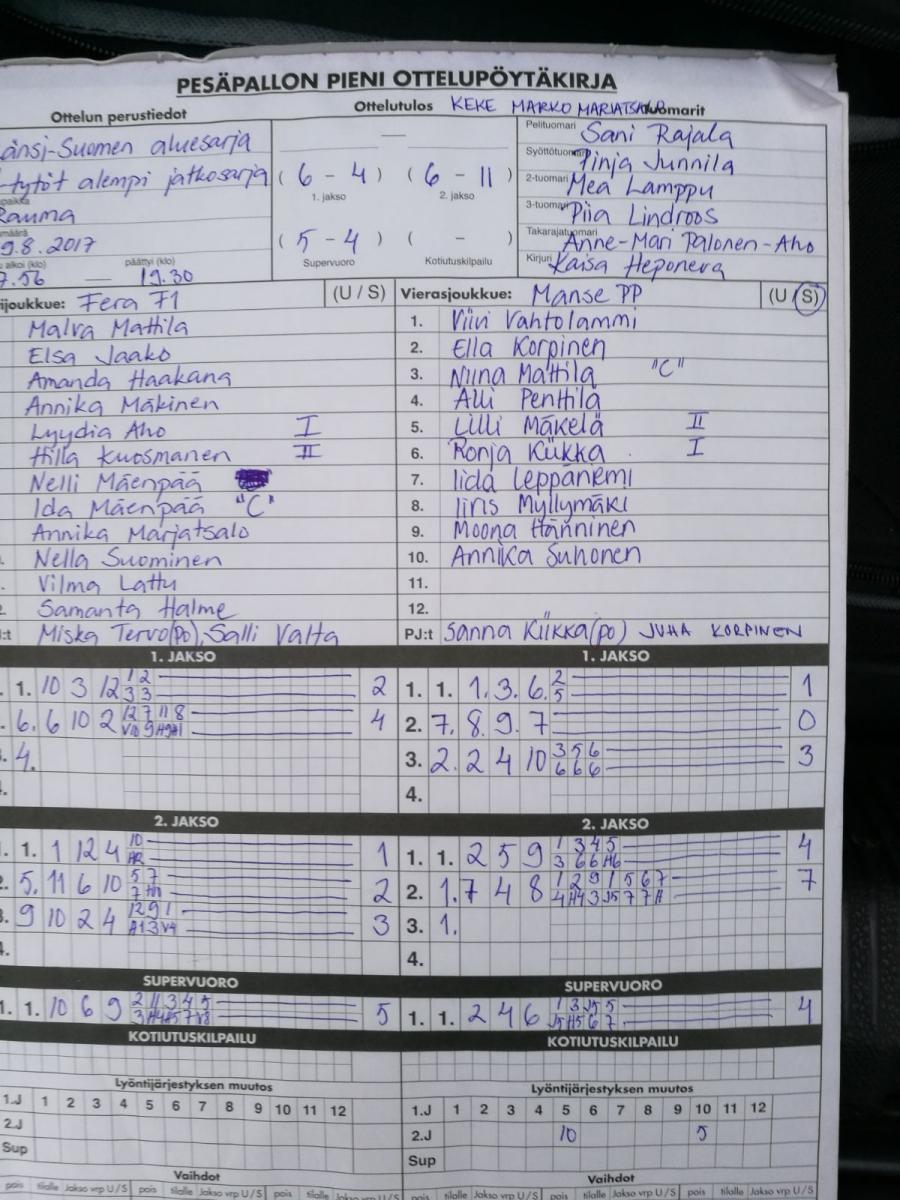 PESÄPALLON PIENI OTTELUPÖYTÄKIRJA
Ottelun perustiedot
Ottelutulos KEKE MARKO MARJATSALO
tuomarit
änsi-Suomen aluesarja
-tytöt alempi jatkosarja
paikka
Rauma
määrä
9.8.2017
alkoi (klo) päättyi (klo)
7.56 19.30
( 6 - 4 ) ( 6 - 11 )
1. jakso 2. jakso
( 5 - 4 ) ( - )
Supervuoro Kotiutuskilpailu
Pelituomari Sani Rajala
Syöttötuomari Tinja Junnila
2-tuomari Mea Lamppu
3-tuomari Piia Lindroos
Takarajatuomari Anne-Mari Palonen-Aho
Kirjuri Kaisa Heponeva
ijoukkue: Fera F1 (U / S)
Malva Mattila
Elsa Jaako
Amanda Haakana
Annika Mäkinen
Lyydia Aho I
Hilla Kuosmanen II
Nelli Mäenpää
Ida Mäenpää "C"
Annika Marjatsalo
Nella Suominen
Vilma Lattu
Samanta Halme
:t Miska Tervo(po), Salli Valta
Vierasjoukkue: Manse PP (U / S)
1. Viivi Vahtolammi
2. Ella Korpinen
3. Niina Mattila "C"
4. Alli Penttilä
5. Lilli Mäkelä II
6. Ronja Kiikka I
7. Iida Leppäniemi
8. Iiris Myllymäki
9. Moona Hänninen
10. Annika Suhonen
11.
12.
PJ:t Sanna Kiikka(po) JUHA KORPINEN
1. JAKSO
1. 10 3 12 1 2 2
3 3
6. 6 10 2 12 7 11 8 4
4.
1. JAKSO
1. 1. 1. 3. 6. 2 1
5
2. 7. 8. 9. 7 0
3. 2. 2 4 10 3 5 6 3
6 6 6
4.
2. JAKSO
1. 1 12 4 10 1
5. 11 6 10 5 7 2
9 10 2 4 12 9 1 3
2. JAKSO
1. 1. 2 5 9 1 3 4 5 4
3 6 6 H6
2. 1. 7 4 8 1 2 9 1 5 6 7 7
3. 1.
4.
SUPERVUORO
1. 1. 10 6 9 2 11 3 4 5 5
SUPERVUORO
1. 1. 2 4 6 4
KOTIUTUSKILPAILU
KOTIUTUSKILPAILU
Lyöntijärjestyksen muutos
1.J 1 2 3 4 5 6 7 8 9 10 11 12
2.J
Sup
Lyöntijärjestyksen muutos
1.J 1 2 3 4 5 6 7 8 9 10 11 12
2.J 10 5
Sup
Vaihdot
pois tilalle Jakso vrp U/S pois tilalle Jakso vrp U/S pois tilalle Jakso vrp U/S
Vaihdot
pois tilalle Jakso vrp U/S pois tilalle Jakso vrp U/S pois tilalle Jakso vrp U/S